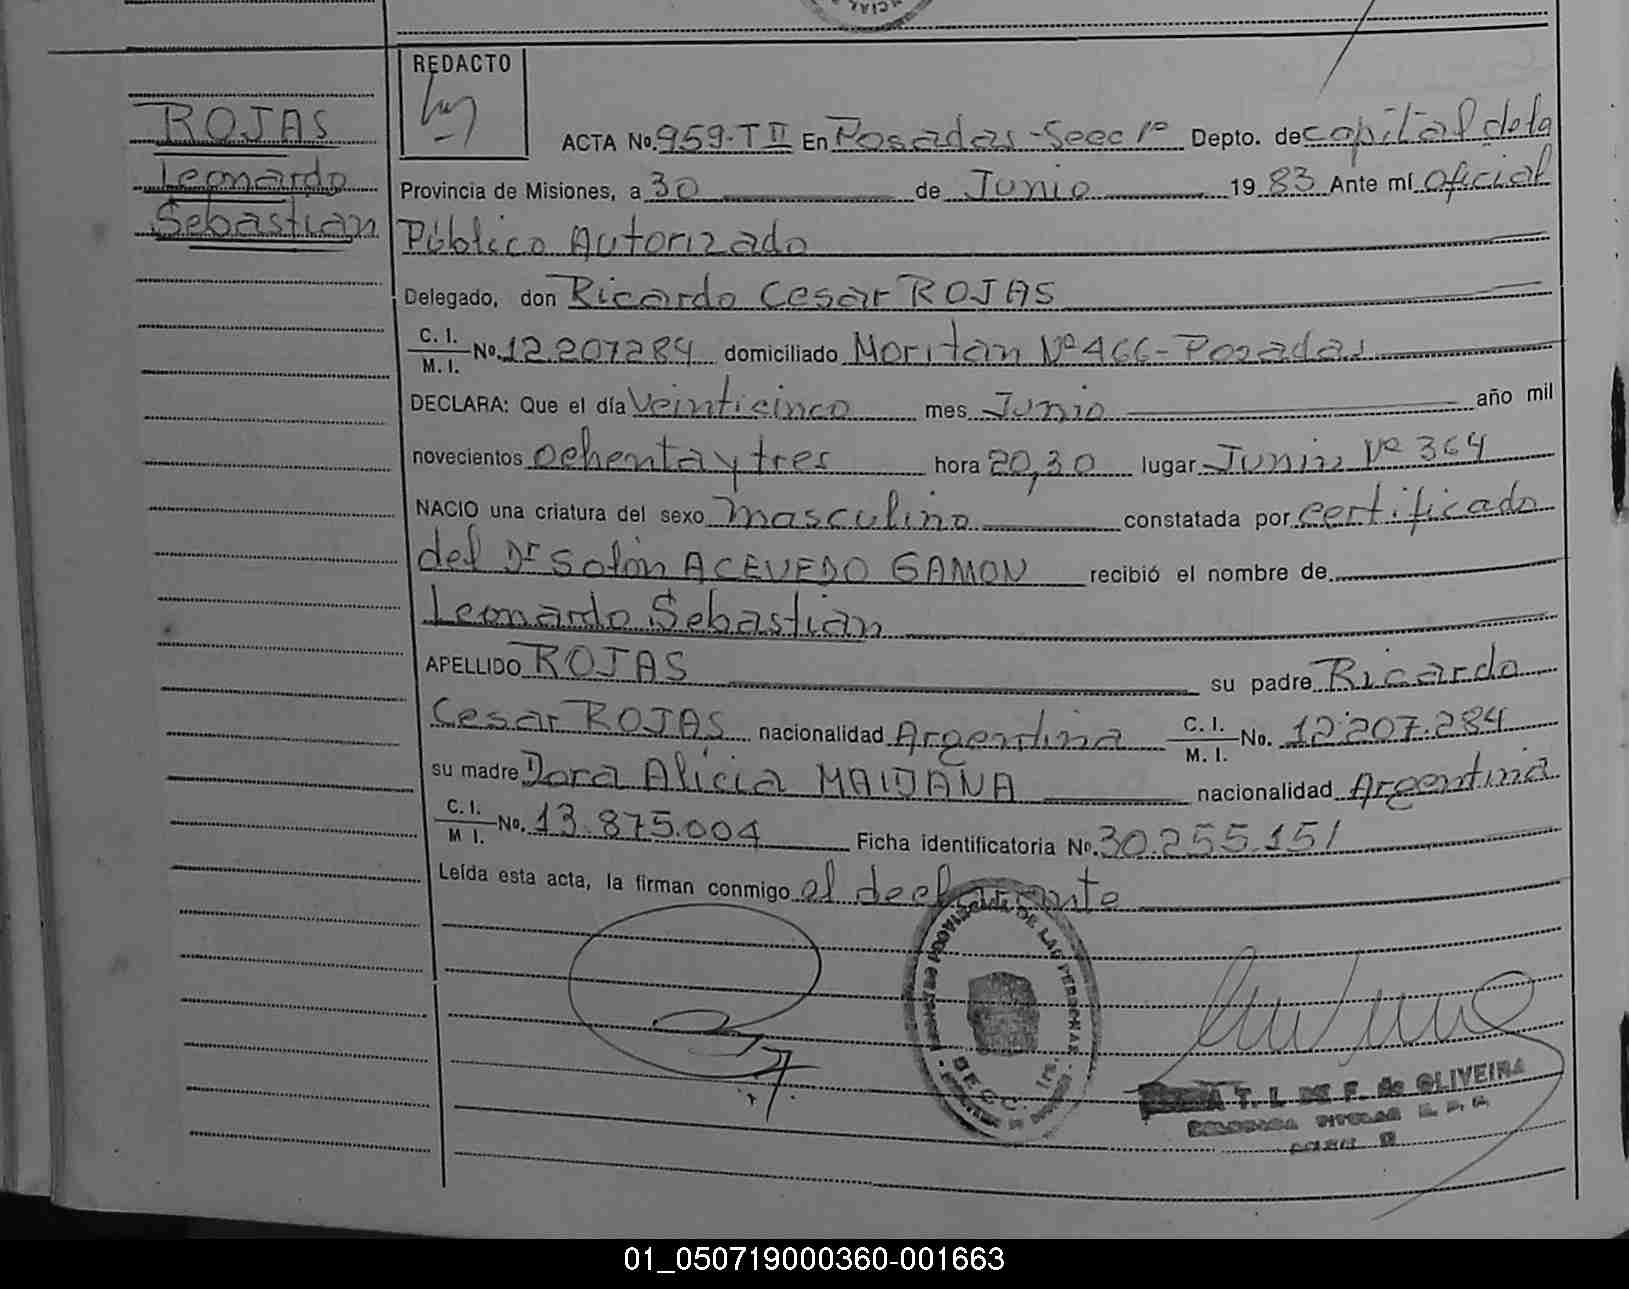 REDACTO
ROJAS
Leonardo
Sebastian
ACTA No. 959-TII En Posadas-Secc 1º Depto. de capital de la
Provincia de Misiones, a 30 de Junio 1983 Ante mí oficial
Público Autorizado
Delegado, don Ricardo Cesar ROJAS
C. I.
M. I. No. 12.207284 domiciliado Moritan Nº 466-Posadas
DECLARA: Que el día Veinticinco mes Junio año mil
novecientos ochenta y tres hora 20,30 lugar Junin Nº 364
NACIO una criatura del sexo masculino constatada por certificado
del Dr Solón ACEVEDO GAMON recibió el nombre de
Leonardo Sebastian
APELLIDO ROJAS su padre Ricardo
Cesar ROJAS nacionalidad Argentina C. I.
M. I. No. 12.207.284
su madre Dora Alicia MAIDANA nacionalidad Argentina
C. I.
M I. No. 13.875.004 Ficha identificatoria No. 30.255.151
Leída esta acta, la firman conmigo el declarante
DE LAS PERSONAS
SECC. 1ra.
T. L. DE F. de OLIVEIRA
TITULAR
01_050719000360-001663